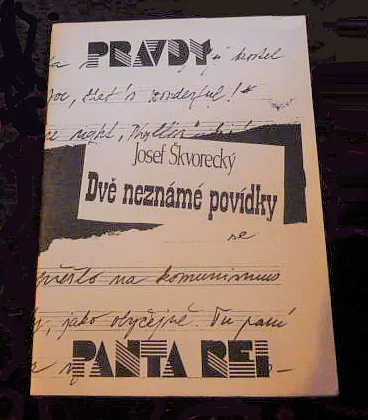 PRAVDY
kostel
that's wonderful!"
right,
Josef Škvorecký
Dvě neznámé povídky
se
na komunismus
jako obyčejně. Tu paní
PANTA REI